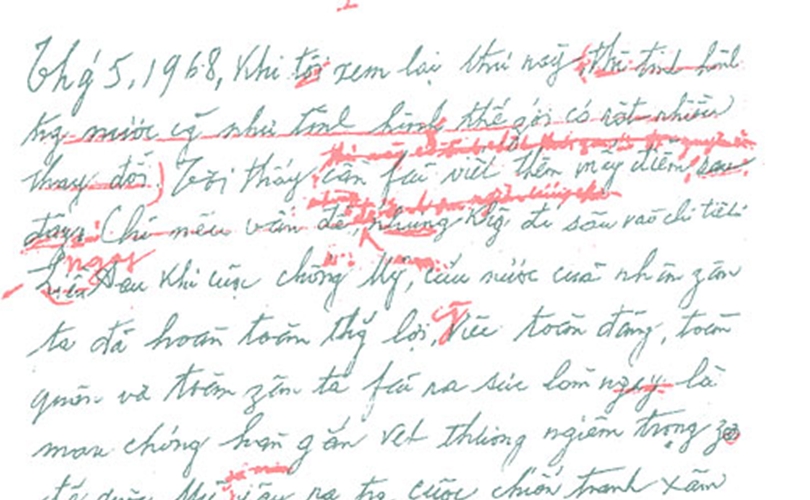 Thg 5, 1968, khi tôi xem lại thư này, (thì tình hình
trg nước cg như tình hình thế giới có rất nhiều
thay đổi) Tôi thấy cần fải viết thêm mấy điểm, sau
đây: Chỉ nêu vấn đề, nhưng khg đi sâu vào chi tiết.
ngay
Sau khi cuộc chống Mỹ, cứu nước của nhân zân
ta đã hoàn toàn thg lợi, việc toàn đảng, toàn
quân và toàn zân ta fải ra sức làm ngay là
mau chóng hàn gắn vết thương ngiêm trọng zo
đế quốc Mỹ gây ra trg cuộc chiến tranh xâm